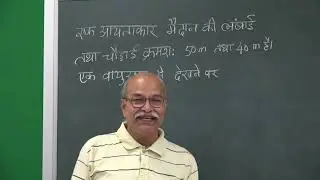 एक आयताकार मैदान की लंबाई
तथा चौड़ाई क्रमशः 50m तथा 40m है।
एक वायुयान से देखने पर